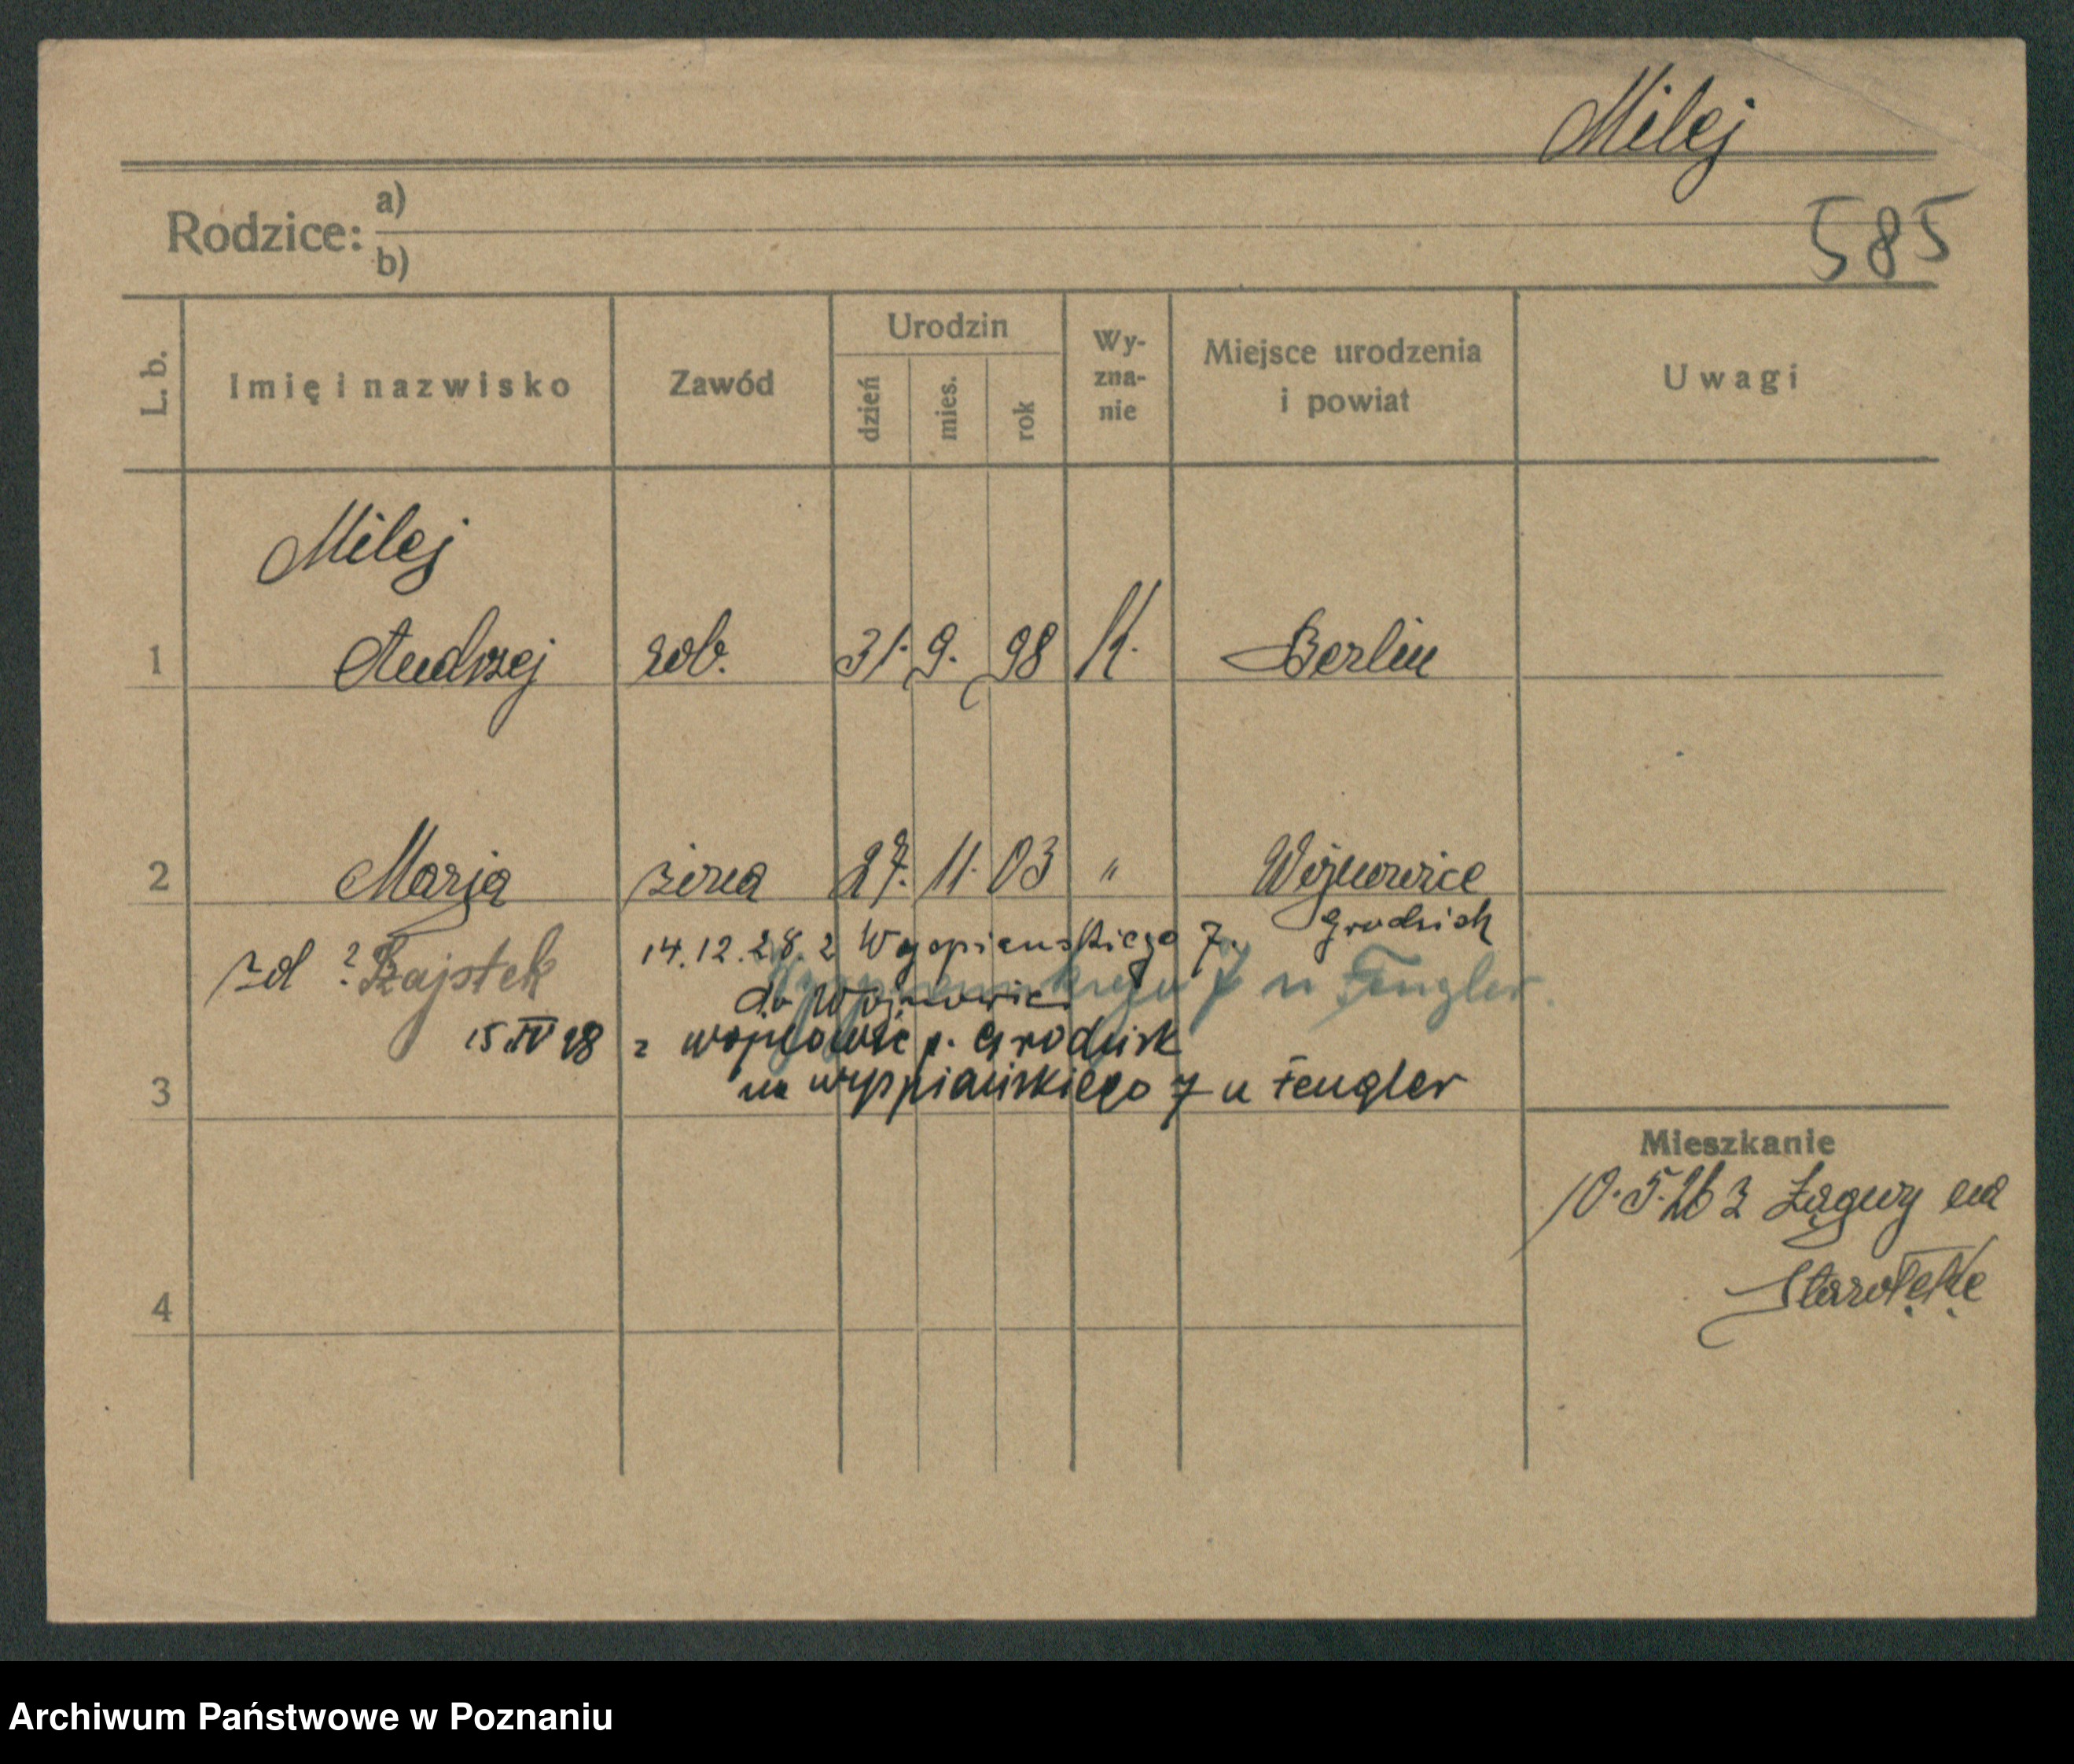 Milej
Rodzice: a)
b)
585
L. b.
Imię i nazwisko
Zawód
Urodzin
dzień
mies.
rok
Wy-
zna-
nie
Miejsce urodzenia
i powiat
Uwagi
Milej
1 Andrzej rob. 31. 9. 98 K. Berlin
2 Marja żona 27. 11. 03 " Wojnowice
Grodzisk
zd ? Szajstek
14.12.28. z Wyspianskiego 7.
do Wojnowic
7 u Fengler.
15 IV 28 z wojnowic p. Grodzisk
na wyspiańskiego 7 u Fengler
3
Mieszkanie
10.5.26 z Żaguy na
Starołękę
4
Archiwum Państwowe w Poznaniu